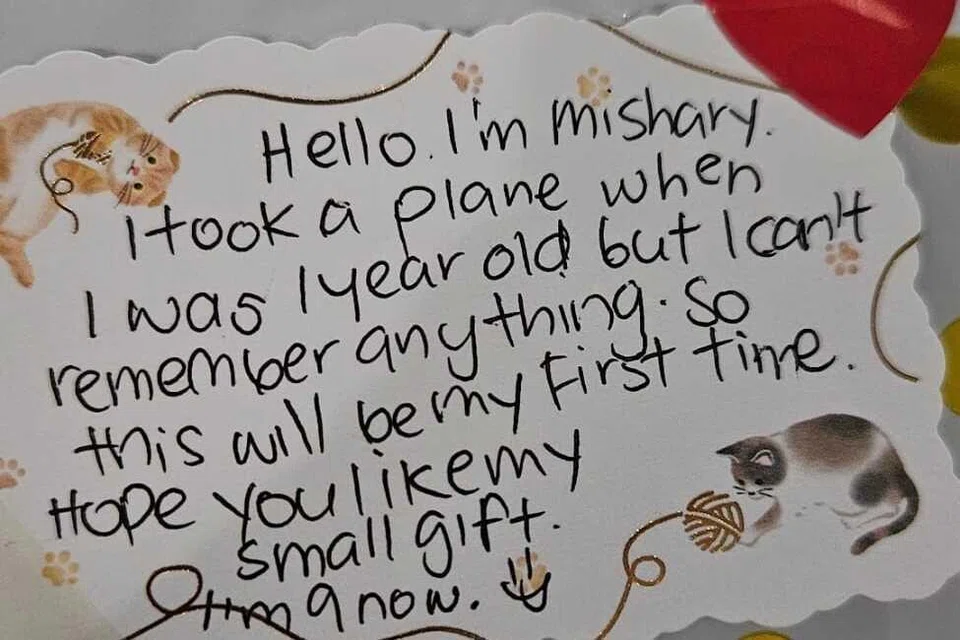 Hello. I'm mishary.
I took a plane when
I was 1 year old but I can't
remember anything. So
this will be my first time.
Hope you like my
small gift.
I'm 9 now.